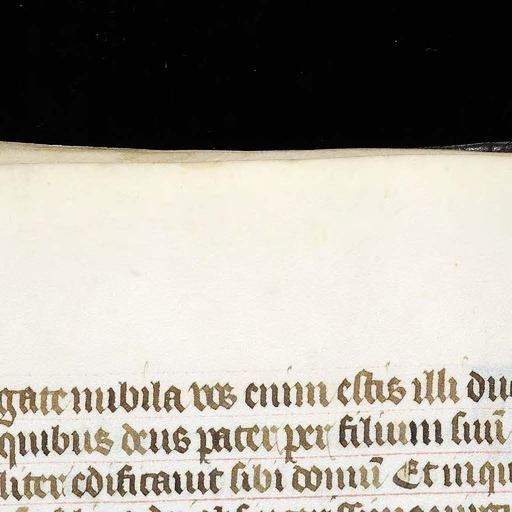 gate nubila vos enim estis illi du
quibus deus pater per filium suū
liter edificauit sibi domū Et in qu